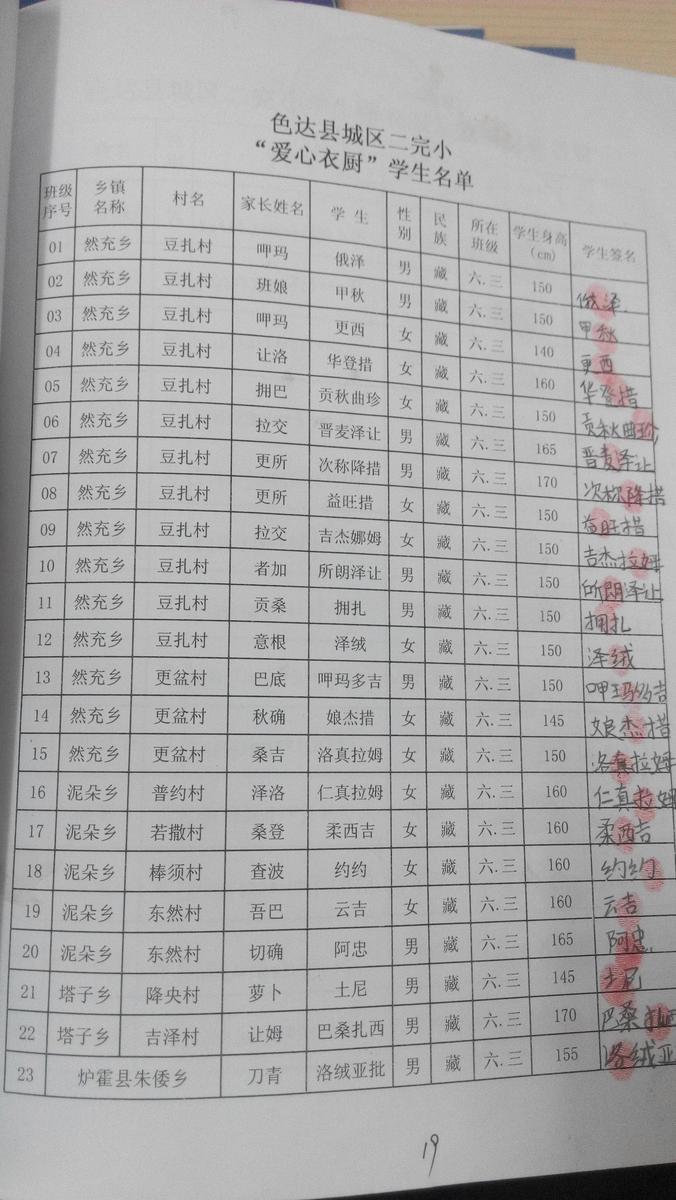 色达县城区二完小
“爱心衣厨”学生名单
班级序号 乡镇名称 村名 家长姓名 学生 性别 民族 所在班级 学生身高（cm） 学生签名
01 然充乡 豆扎村 呷玛 俄泽 男 藏 六.三 150 俄泽
02 然充乡 豆扎村 班娘 甲秋 男 藏 六.三 150 甲秋
03 然充乡 豆扎村 呷玛 更西 女 藏 六.三 140 更西
04 然充乡 豆扎村 让洛 华登措 女 藏 六.三 160 华登措
05 然充乡 豆扎村 拥巴 贡秋曲珍 女 藏 六.三 150 贡秋曲珍
06 然充乡 豆扎村 拉交 晋麦泽让 男 藏 六.三 165 晋麦泽让
07 然充乡 豆扎村 更所 次称降措 男 藏 六.三 170 次称降措
08 然充乡 豆扎村 更所 益旺措 女 藏 六.三 150 益旺措
09 然充乡 豆扎村 拉交 吉杰娜姆 女 藏 六.三 150 吉杰拉姆
10 然充乡 豆扎村 者加 所朗泽让 男 藏 六.三 150 所朗泽让
11 然充乡 豆扎村 贡桑 拥扎 男 藏 六.三 150 拥扎
12 然充乡 豆扎村 意根 泽绒 女 藏 六.三 150 泽绒
13 然充乡 更盆村 巴底 呷玛多吉 男 藏 六.三 150 呷玛多吉
14 然充乡 更盆村 秋确 娘杰措 女 藏 六.三 145 娘杰措
15 然充乡 更盆村 桑吉 洛真拉姆 女 藏 六.三 150 洛真拉姆
16 泥朵乡 普约村 泽洛 仁真拉姆 女 藏 六.三 160 仁真拉姆
17 泥朵乡 若撒村 桑登 柔西吉 女 藏 六.三 160 柔西吉
18 泥朵乡 棒须村 查波 约约 女 藏 六.三 160 约约
19 泥朵乡 东然村 吾巴 云吉 女 藏 六.三 160 云吉
20 泥朵乡 东然村 切确 阿忠 男 藏 六.三 165 阿忠
21 塔子乡 降央村 萝卜 土尼 男 藏 六.三 145 土尼
22 塔子乡 吉泽村 让姆 巴桑扎西 男 藏 六.三 170 巴桑扎西
23 炉霍县朱倭乡 刀青 洛绒亚批 男 藏 六.三 155 洛绒亚
19